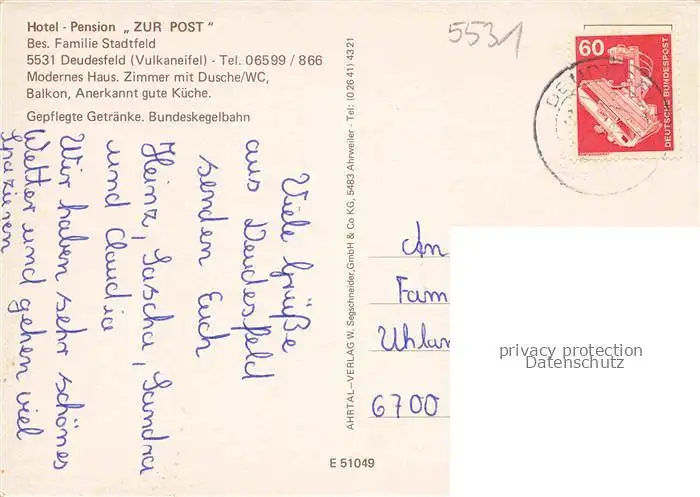 Hotel - Pension „ ZUR POST "
Bes. Familie Stadtfeld
5531 Deudesfeld (Vulkaneifel) - Tel. 06599 / 866
Modernes Haus. Zimmer mit Dusche/WC,
Balkon, Anerkannt gute Küche.
Gepflegte Getränke. Bundeskegelbahn
Viele Grüße
aus Deudesfeld
senden Euch
Heinz, Sascha, Sandra
und Claudia
Wir haben sehr schönes
Wetter und gehen viel
spazieren
AHRTAL–VERLAG W. Segschneider, GmbH & Co KG, 5483 Ahrweiler - Tel: (0 26 41) 43 21
E 51049
5531
60
DEUTSCHE BUNDESPOST
An
Fam
Uhlan
6700
privacy protection
Datenschutz